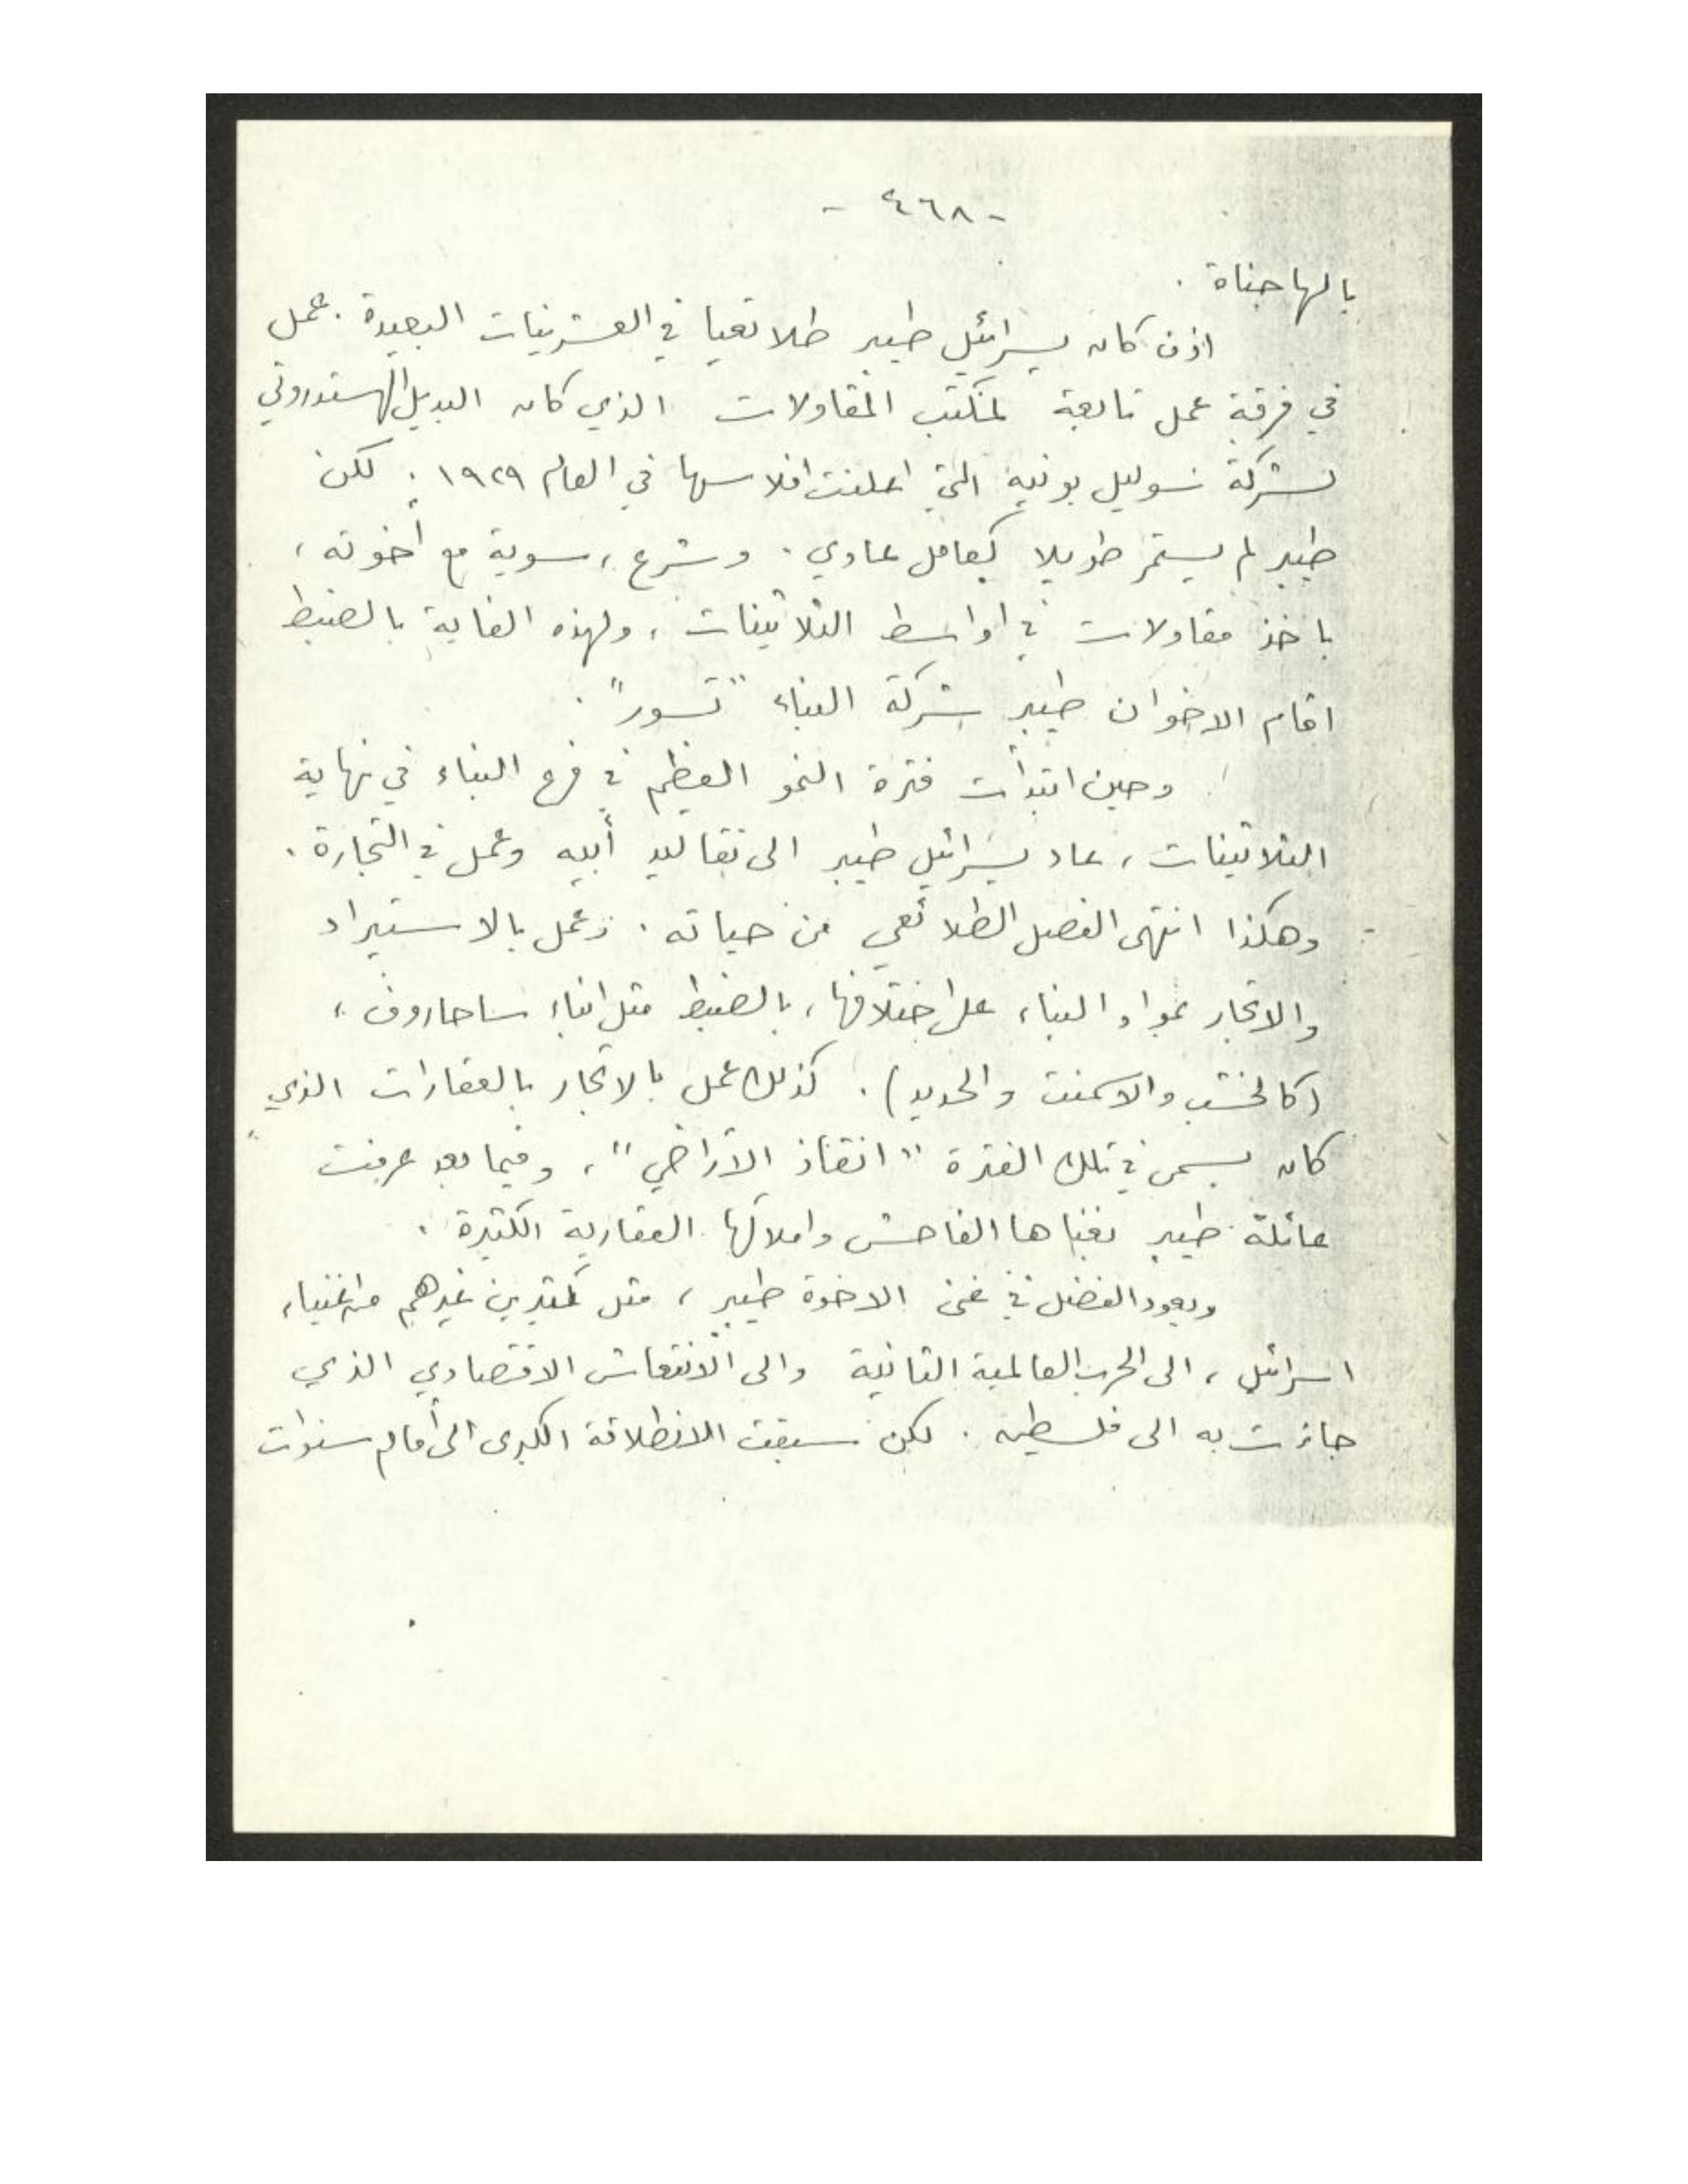 - ٤٦٨ -
بالهاجناة .
اذن كان يسرائيل طيبر طلائعيا في العشرينات البعيدة . عمل
في فرقة عمل تابعة لمكتب المقاولات الذي كان البديل الهستدروتي
لشركة سوليل بونيه التي اعلنت افلاسها في العام ١٩٢٩ . لكن
طيبر لم يستمر طويلا كعامل عادي . وشرع ، سوية مع أخوته ،
باخذ مقاولات في اواسط الثلاثينات ، ولهذه الغاية بالضبط
اقام الاخوان طيبر شركة البناء "تسور" .
وحين ابتدأت فترة النمو العظيم في فرع البناء في نهاية
الثلاثينات ، عاد يسرائيل طيبر الى تقاليد أبيه وعمل في التجارة .
وهكذا انتهى الفصل الطلائعي من حياته . وعمل بالاستيراد
والاتجار بمواد البناء على اختلافها ، بالضبط مثل ابناء ساحاروف ،
(كالخشب والاسمنت والحديد) . كذلك عمل بالاتجار بالعقارات الذي
كان يسمى في تلك الفترة "انقاذ الأراضي" ، وفيما بعد عرفت
عائلة طيبر بغناها الفاحش واملاكها العقارية الكثيرة .
ويعود الفضل في غنى الاخوة طيبر ، مثل كثيرين غيرهم من اغنياء
اسرائيل ، الى الحرب العالمية الثانية والى الانتعاش الاقتصادي الذي
جاءت به الى فلسطين . لكن سبقت الانطلاقة الكبرى الى أمام سنوات